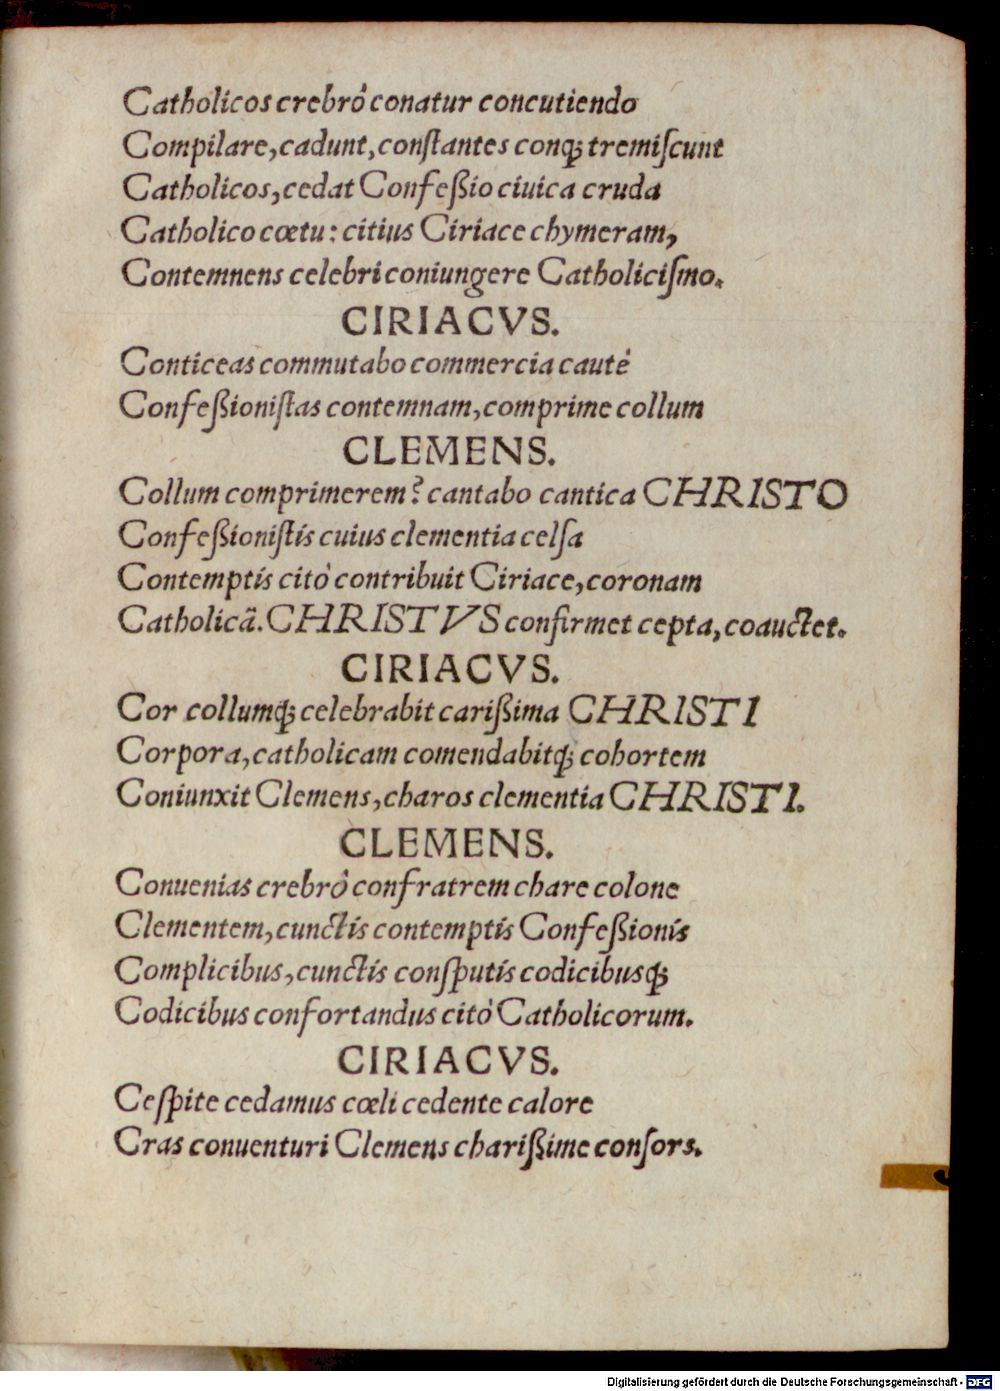 Catholicos crebrò conatur concutiendo
Compilare, cadunt, conſtantes conq́; tremiſcunt
Catholicos, cedat Confeßio ciuica cruda
Catholico cœtu: citius Ciriace chymeram,
Contemnens celebri coniungere Catholiciſmo.
CIRIACVS.
Conticeas commutabo commercia cautè
Confeßioniſtas contemnam, comprime collum
CLEMENS.
Collum comprimerem? cantabo cantica CHRISTO
Confeßioniſtis cuius clementia celſa
Contemptis citò contribuit Ciriace, coronam
Catholicã. CHRISTVS confirmet cepta, coauctet.
CIRIACVS.
Cor collumq́; celebrabit carißima CHRISTI
Corpora, catholicam comendabitq́; cohortem
Coniunxit Clemens, charos clementia CHRISTI.
CLEMENS.
Conuenias crebrò confratrem chare colone
Clementem, cunctis contemptis Confeßionis
Complicibus, cunctis conſputis codicibusq́;
Codicibus confortandus citò Catholicorum.
CIRIACVS.
Ceſpite cedamus cœli cedente calore
Cras conuenturi Clemens charißime conſors.
Digitalisierung gefördert durch die Deutsche Forschungsgemeinschaft - DFG